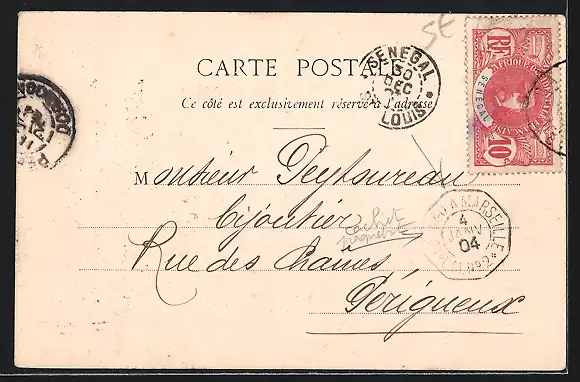 SE
CARTE POSTALE
Ce côté est exclusivement réservé à l'adresse
SENEGAL
30
DEC
ST LOUIS
RF
AFRIQUE OCCIDENTALE FRANÇAISE
SENEGAL
10c
Monsieur Peytoureau
Bijoutier
cachet
paquebot
Rue des Chaines
Périgueux
A MARSEILLE
4
JANV
04
L.L. Nº2
DORDOGNE